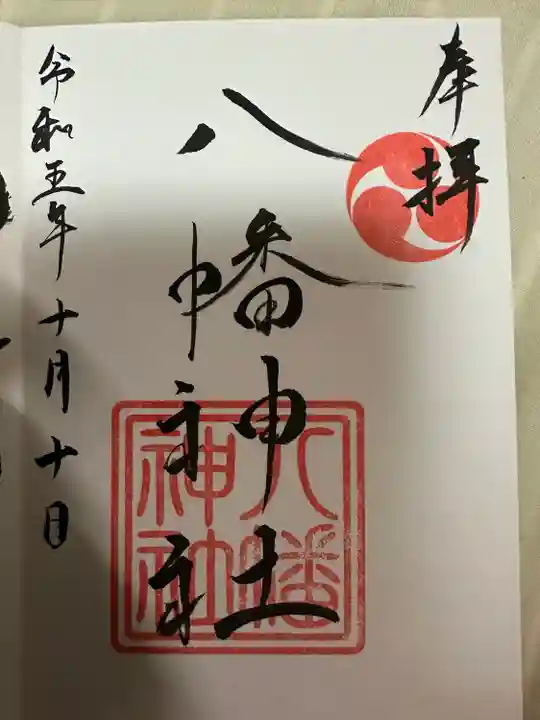 奉拝
八幡神社
八幡神社
令和五年十月十日